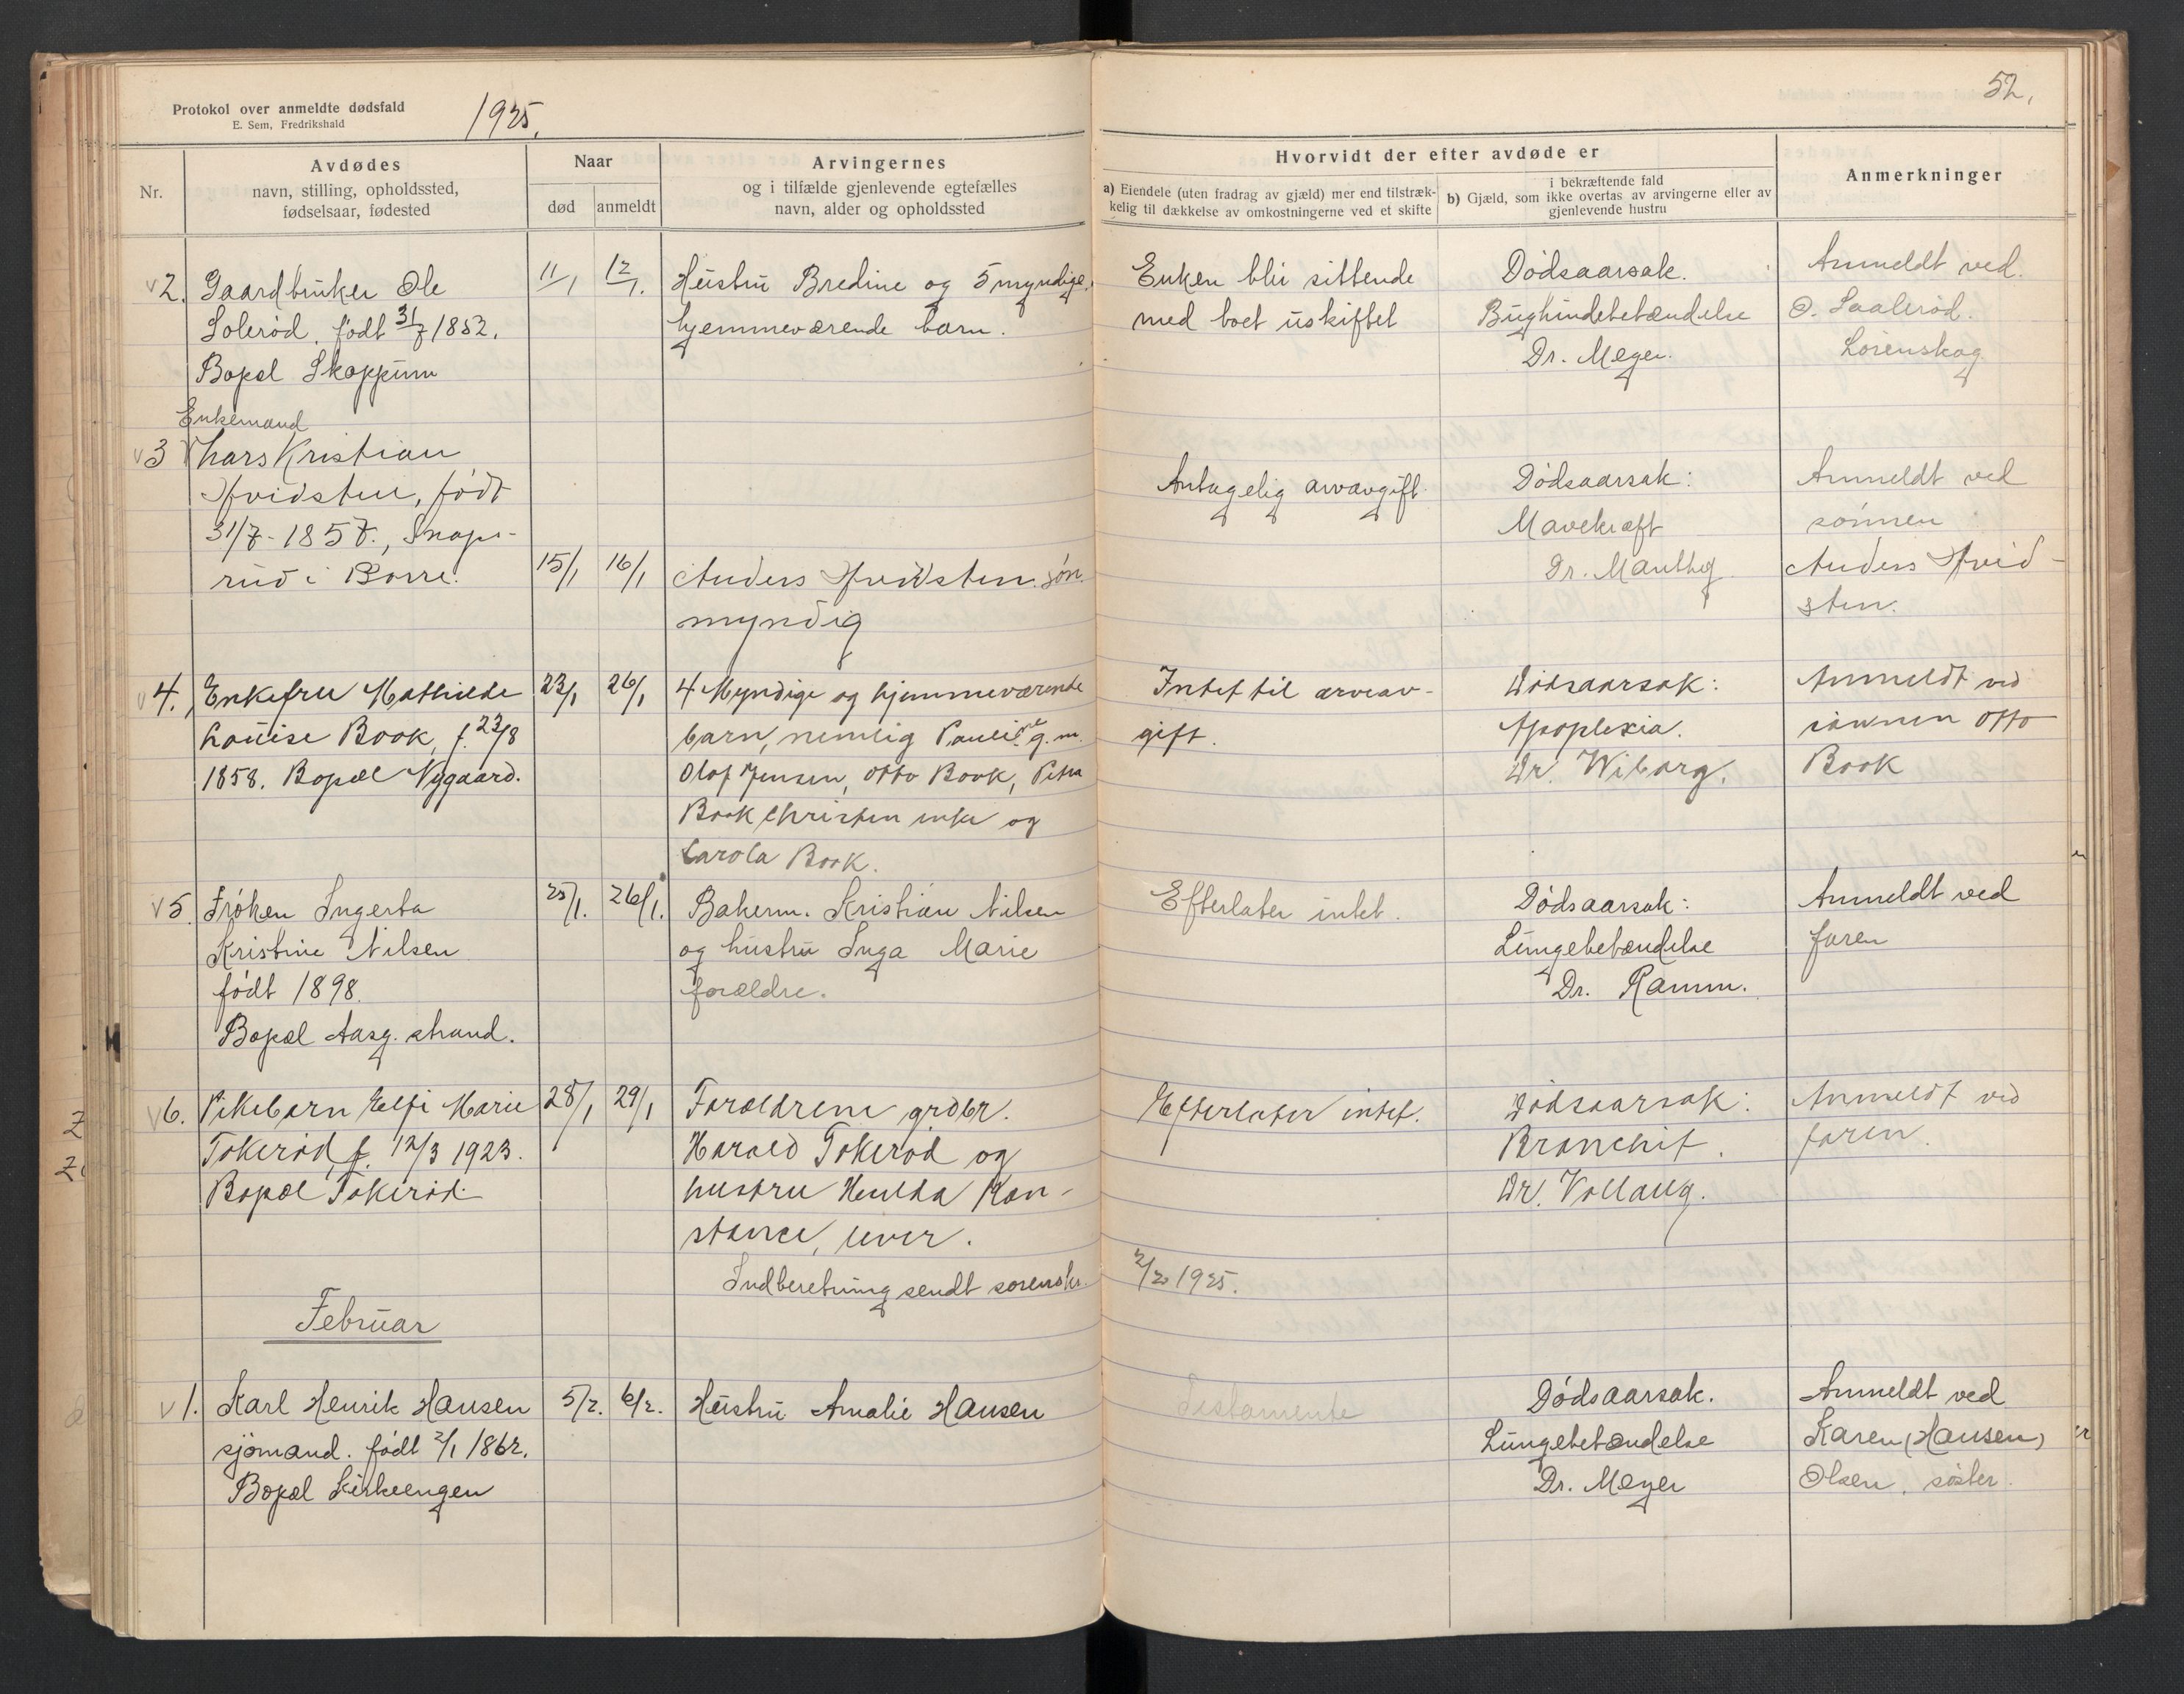 Protokol over anmeldte dødsfald
E. Sem, Fredrikshald
1925.
52.
Nr.
Avdødes
navn, stilling, opholdssted,
fødselsaar, fødested
Naar
død
anmeldt
Arvingernes
og i tilfælde gjenlevende egtefælles
navn, alder og opholdssted
Hvorvidt der efter avdøde er
a) Eiendele (uten fradrag av gjæld) mer end tilstræk-
kelig til dækkelse av omkostningerne ved et skifte
i bekræftende fald
b) Gjæld, som ikke overtas av arvingerne eller av
gjenlevende hustru
Anmerkninger
2.
Gaardbruker Ole
Solerød, født 31/7 1852.
Bopæl Skoppum
11/1
12/1.
Hustru Bredine og 5 myndige,
hjemmeværende barn.
Enken blir sittende
med boet uskiftet
Dødsaarsak.
Bughindebetændelse
Dr. Meyer.
Anmeldt ved.
O. Saalerød.
Lørenskog
Enkemand
3
Lars Kristian
Hvidsten, født
31/7-1857.,
rud i Borre.
15/1
16/1
Anders Hvidsten. søn.
myndig
Antagelig arvavgift.
Dødsaarsak:
Mavekræft
Dr. Manthey
Anmeldt ved
sønnen
Anders Hvid-
sten.
4.
Enkefru Mathilde
Louise Book, f. 23/8
1858. Bopæl Nygaard.
23/1
26/1
4 Myndige og hjemmeværende
barn, nemlig Pauline g.m.
Olaf Jensen, Otto Book, Petra
Book Christen enke og
Carola Book.
Intet til arveav-
gift.
Dødsaarsak:
Apoplexia.
Dr. Wiborg.
Anmeldt ved
sønnen Otto
Book
5.
Frøken Ingerta
Kristine Nilsen
født 1898.
Bopæl Aasg. strand.
25/1.
26/1.
Bakerm. Kristian Nilsen
og hustru Inga Marie
forældre.
Efterlater intet.
Dødsaarsak:
Lungebetændelse
Dr. Ramm.
Anmeldt ved
faren
6.
Pikebarn Elfi Marie
Tokerød, f. 12/3 1923.
Bopæl Tokerød.
28/1
29/1
Forældrene grdbr.
Harald Tokerød og
hustru Hulda Kon-
stance, lever.
Efterlater intet.
Dødsaarsak:
Bronchit.
Dr. Vollaug.
Anmeldt ved
faren.
Indberetning sendt sorenskr. 2/2 1925.
Februar
1.
Karl Henrik Hansen
sjømand. født 2/1 1862.
Bopæl Kirkeengen
5/2.
6/2.
Hustru Amalie Hansen
Testamente
Dødsaarsak.
Lungebetændelse
Dr. Meyer
Anmeldt ved
Karen (Hansen)
Olsen, søster.